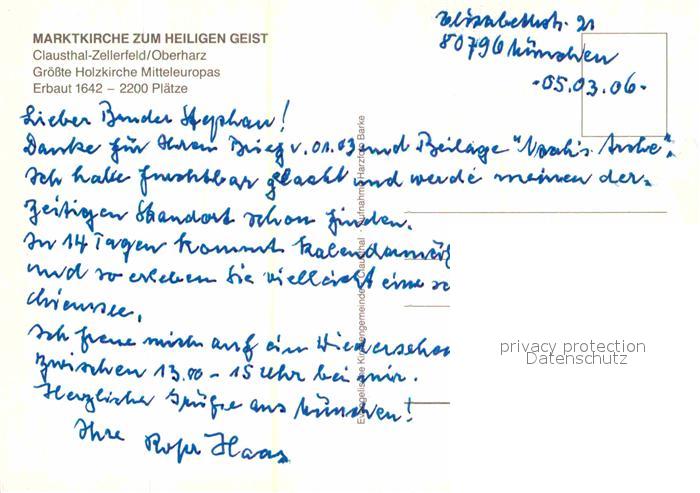 MARKTKIRCHE ZUM HEILIGEN GEIST
Clausthal-Zellerfeld/Oberharz
Größte Holzkirche Mitteleuropas
Erbaut 1642 – 2200 Plätze
Elisabethstr. 21
80796 München
-05.03.06-
Lieber Bruder Stephan!
Danke für Ihren Brief v. 01.03 und Beilage "Noah's Arche".
Ich habe furchtbar gelacht und werde meinen der-
zeitigen Standort schon finden.
In 14 Tagen kommt
und so erleben Sie vielleicht eine
Chiemsee.
Ich freue mich auf ein Wiedersehen
zwischen 13.00 - 15 Uhr bei mir.
Herzliche Grüße aus München!
Ihre Haas
Evangelische Kirchengemeinde Clausthal · Aufnahme Harzfoto Barke
privacy protection
Datenschutz